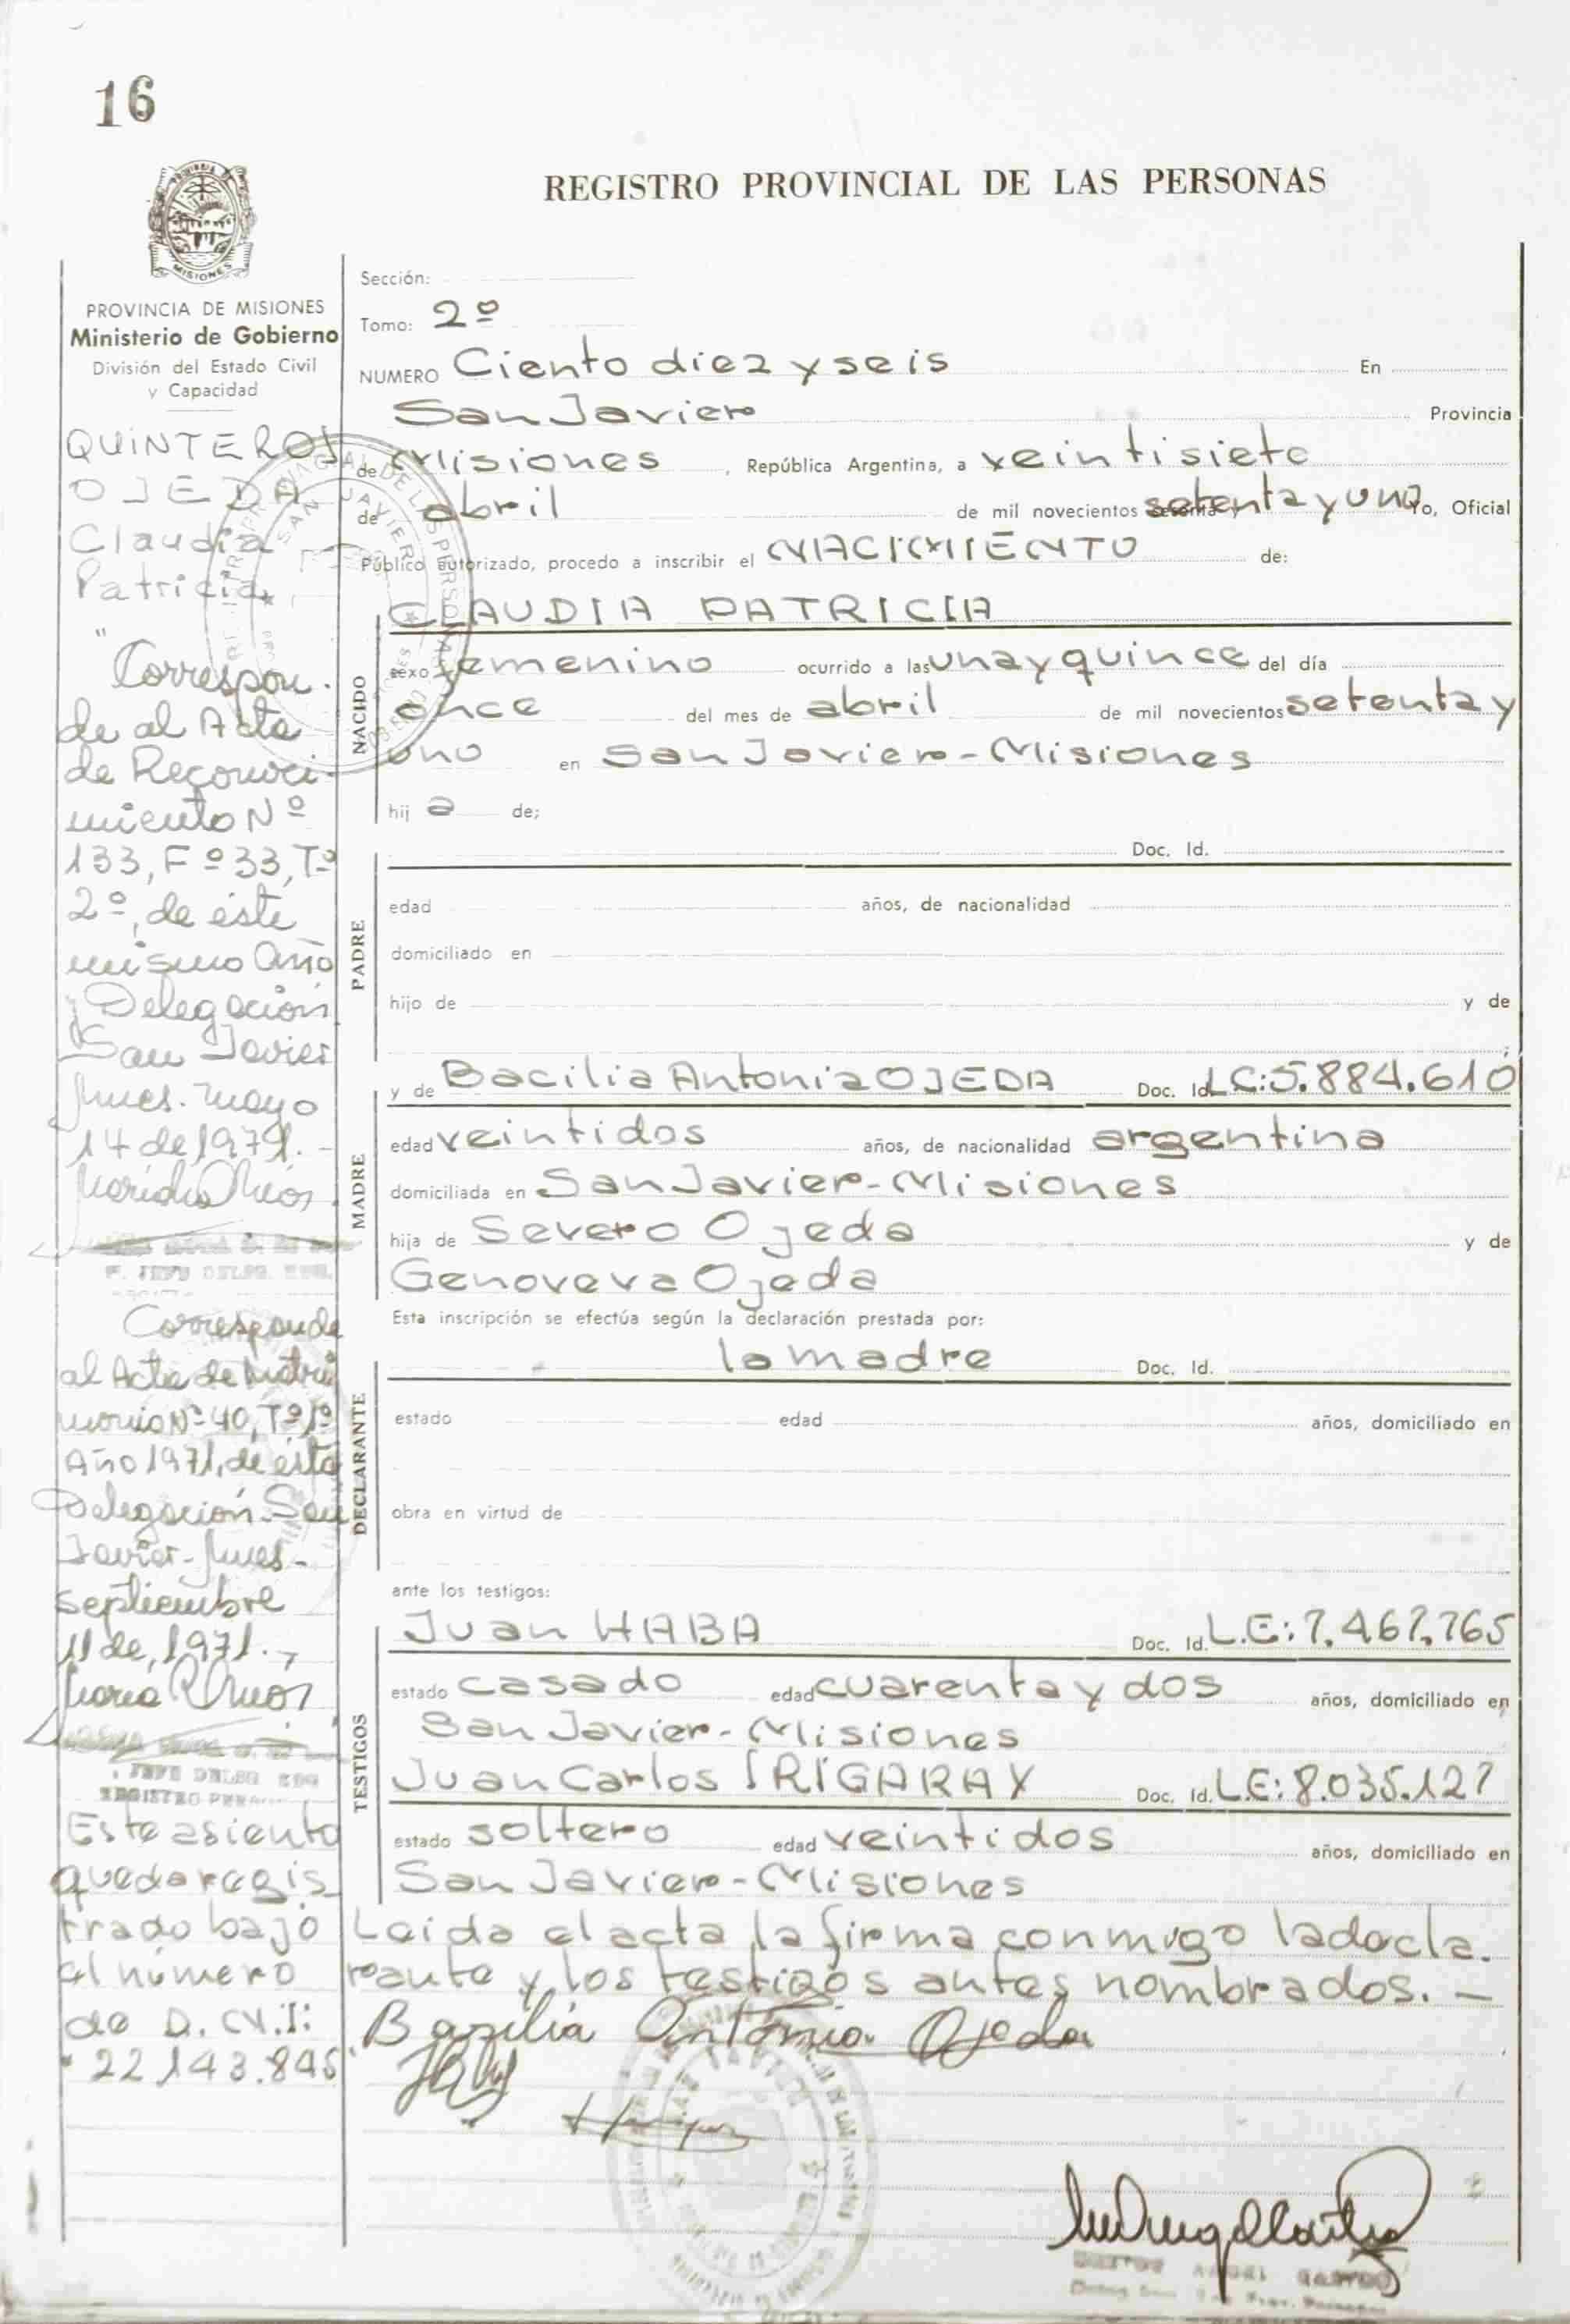 16
REGISTRO PROVINCIAL DE LAS PERSONAS
MISIONES
PROVINCIA DE MISIONES
Ministerio de Gobierno
División del Estado Civil
y Capacidad
QUINTEROS
OJEDA
Claudia
Patricia
"Correspon-
de al Acta
de Reconoci-
miento Nº
133, Fº 33, Tº
2º, de éste
mismo Año
Delegación
San Javier
Mnes. mayo
14 de 1971.-
Corresponde
al Acta de Matri
monio Nº 40, Tº 1º
Año 1971, de esta
Delegación San
Javier-Mnes-
septiembre
11 de, 1971.-
Este asiento
queda regis
trado bajo
el número
de D.N.I:
22.143.845
Sección:
Tomo: 2º
NUMERO Ciento diez y seis En
San Javier Provincia
de Misiones, República Argentina, a veintisiete
de abril de mil novecientos setenta y uno Yo, Oficial
Público autorizado, procedo a inscribir el NACIMIENTO de:
NACIDO
CLAUDIA PATRICIA
sexo femenino ocurrido a las una y quince del día
once del mes de abril de mil novecientos setenta y
uno en San Javier-Misiones
hij a de;
PADRE
Doc. Id.
edad años, de nacionalidad
domiciliado en
hijo de y de
;
MADRE
y de Bacilia Antonia OJEDA Doc. Id. LC:5.884.610
edad veintidos años, de nacionalidad argentina
domiciliada en San Javier-Misiones
hija de Severo Ojeda y de
Genoveva Ojeda
Esta inscripción se efectúa según la declaración prestada por:
DECLARANTE
la madre Doc. Id.
estado edad años, domiciliado en
obra en virtud de
ante los testigos:
TESTIGOS
Juan HABA Doc. Id. L.E:7.467.765
estado casado edad cuarenta y dos años, domiciliado en
San Javier-Misiones
Juan Carlos IRIGARAY Doc. Id. L.E:8.035.127
estado soltero edad veintidos años, domiciliado en
San Javier-Misiones
Leida el acta, la firma conmigo la decla-
rante y los testigos antes nombrados.-
Basilia Antonia Ojeda